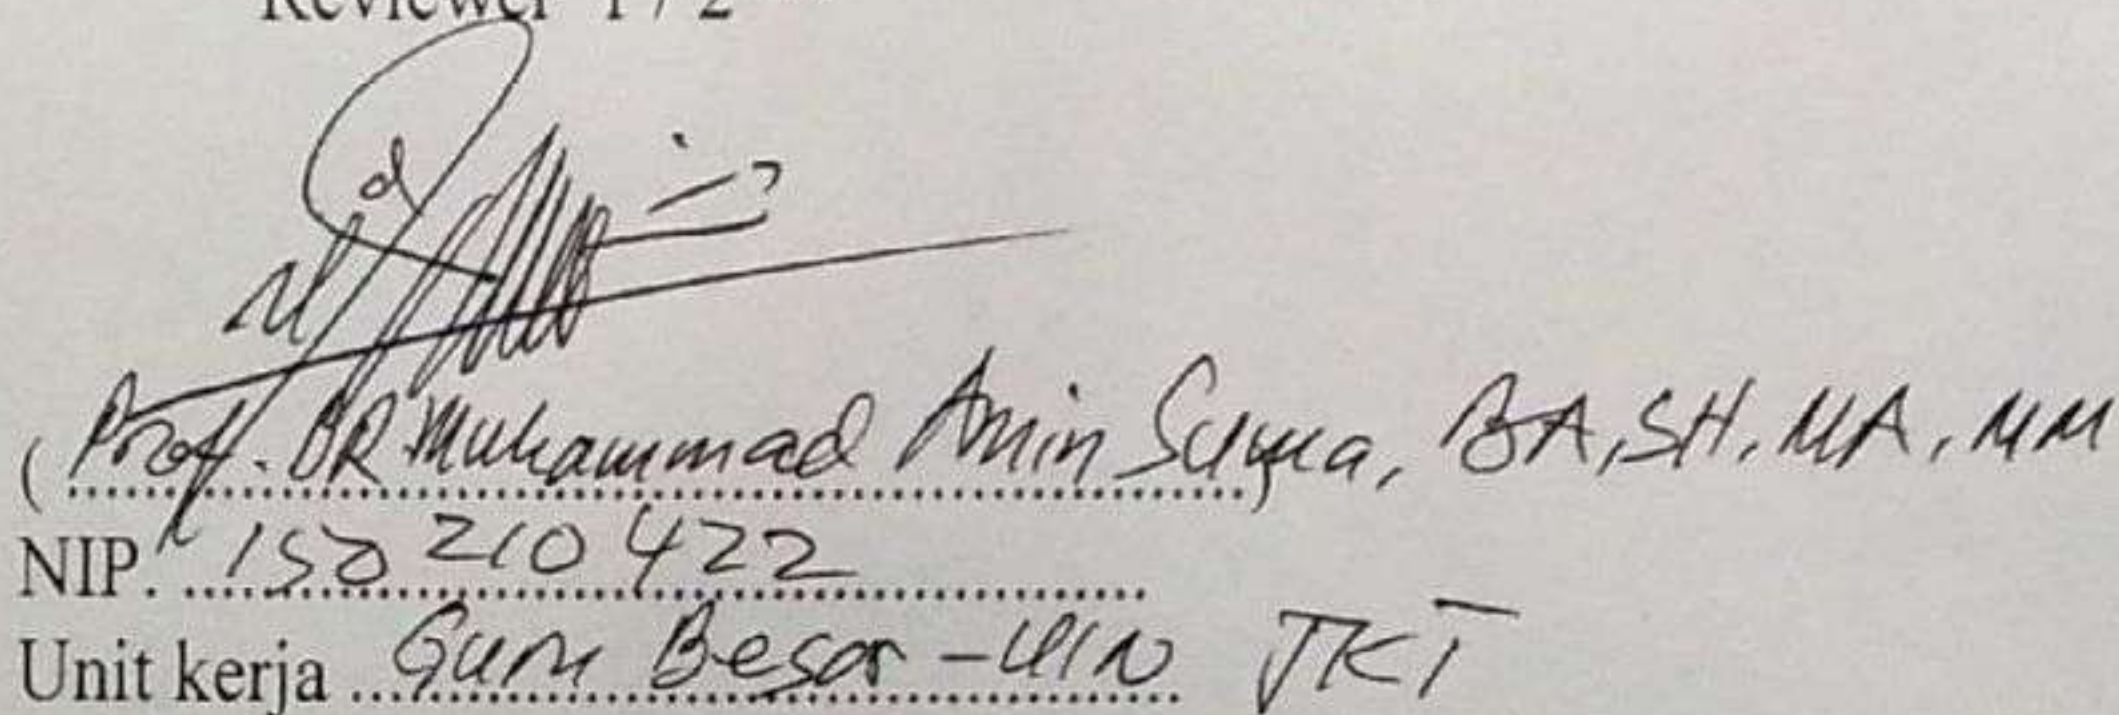 Reviewer 1 / 2
( Prof. DR Muhammad Amin Suma, BA, SH, MA, MM
NIP. 150 210 422
Unit kerja Guru Besar - UIN JKT